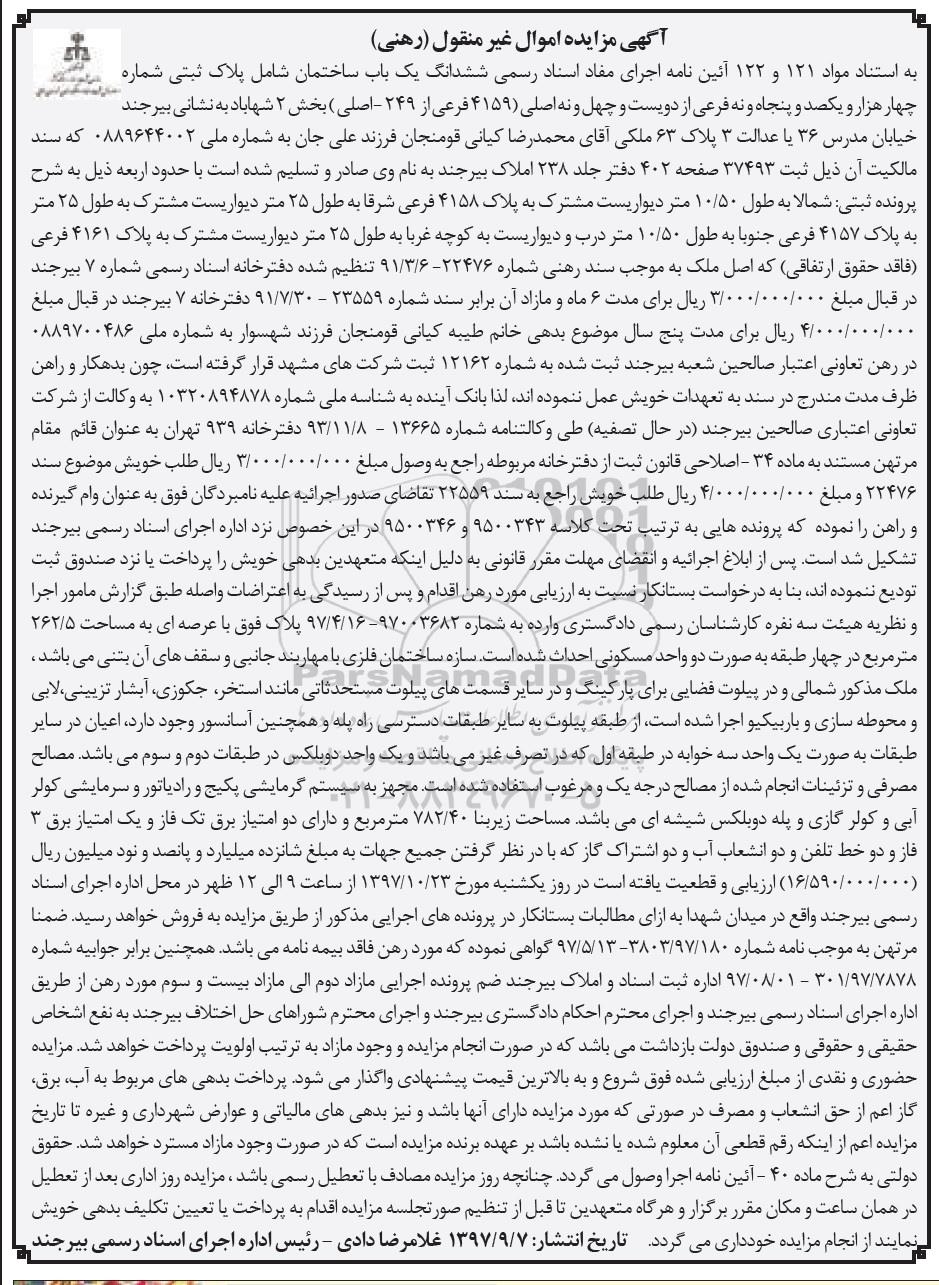 آگهی مزایده اموال غیر منقول (رهنی)
به استناد مواد ۱۲۱ و ۱۲۲ آئین نامه اجرای مفاد اسناد رسمی ششدانگ یک باب ساختمان شامل پلاک ثبتی شماره
چهار هزار و یکصد و پنجاه و نه فرعی از دویست و چهل و نه اصلی (۴۱۵۹ فرعی از ۲۴۹ -اصلی) بخش ۲ شهاباد به نشانی بیرجند
خیابان مدرس ۳۶ یا عدالت ۳ پلاک ۶۳ ملکی آقای محمدرضا کیانی قومنجان فرزند علی جان به شماره ملی ۰۸۸۹۶۴۴۰۰۲ که سند
مالکیت آن ذیل ثبت ۳۷۴۹۳ صفحه ۴۰۲ دفتر جلد ۲۳۸ املاک بیرجند به نام وی صادر و تسلیم شده است با حدود اربعه ذیل به شرح
پرونده ثبتی: شمالا به طول ۱۰/۵۰ متر دیواریست مشترک به پلاک ۴۱۵۸ فرعی شرقا به طول ۲۵ متر دیواریست مشترک به طول ۲۵ متر
به پلاک ۴۱۵۷ فرعی جنوبا به طول ۱۰/۵۰ متر درب و دیواریست به کوچه غربا به طول ۲۵ متر دیواریست مشترک به پلاک ۴۱۶۱ فرعی
(فاقد حقوق ارتفاقی) که اصل ملک به موجب سند رهنی شماره ۲۲۴۷۶- ۹۱/۳/۶ تنظیم شده دفترخانه اسناد رسمی شماره ۷ بیرجند
در قبال مبلغ ۳/۰۰۰/۰۰۰/۰۰۰ ریال برای مدت ۶ ماه و مازاد آن برابر سند شماره ۲۳۵۵۹ - ۹۱/۷/۳۰ دفترخانه ۷ بیرجند در قبال مبلغ
۴/۰۰۰/۰۰۰/۰۰۰ ریال برای مدت پنج سال موضوع بدهی خانم طیبه کیانی قومنجان فرزند شهسوار به شماره ملی ۰۸۸۹۷۰۰۴۸۶
در رهن تعاونی اعتبار صالحین شعبه بیرجند ثبت شده به شماره ۱۲۱۶۲ ثبت شرکت های مشهد قرار گرفته است، چون بدهکار و راهن
ظرف مدت مندرج در سند به تعهدات خویش عمل ننموده اند، لذا بانک آینده به شناسه ملی شماره ۱۰۳۲۰۸۹۴۸۷۸ به وکالت از شرکت
تعاونی اعتباری صالحین بیرجند (در حال تصفیه) طی وکالتنامه شماره ۱۳۶۶۵ - ۹۳/۱۱/۸ دفترخانه ۹۳۹ تهران به عنوان قائم مقام
مرتهن مستند به ماده ۳۴ -اصلاحی قانون ثبت از دفترخانه مربوطه راجع به وصول مبلغ ۳/۰۰۰/۰۰۰/۰۰۰ ریال طلب خویش موضوع سند
۲۲۴۷۶ و مبلغ ۴/۰۰۰/۰۰۰/۰۰۰ ریال طلب خویش راجع به سند ۲۲۵۵۹ تقاضای صدور اجرائیه علیه نامبردگان فوق به عنوان وام گیرنده
و راهن را نموده که پرونده هایی به ترتیب تحت کلاسه ۹۵۰۰۳۴۳ و ۹۵۰۰۳۴۶ در این خصوص نزد اداره اجرای اسناد رسمی بیرجند
تشکیل شد است. پس از ابلاغ اجرائیه و انقضای مهلت مقرر قانونی به دلیل اینکه متعهدین بدهی خویش را پرداخت یا نزد صندوق ثبت
تودیع ننموده اند، بنا به درخواست بستانکار نسبت به ارزیابی مورد رهن اقدام و پس از رسیدگی به اعتراضات واصله طبق گزارش مامور اجرا
و نظریه هیئت سه نفره کارشناسان رسمی دادگستری وارده به شماره ۹۷۰۰۳۶۸۲- ۹۷/۴/۱۶ پلاک فوق با عرصه ای به مساحت ۲۶۲/۵
مترمربع در چهار طبقه به صورت دو واحد مسکونی احداث شده است. سازه ساختمان فلزی با مهاربند جانبی و سقف های آن بتنی می باشد ،
ملک مذکور شمالی و در پیلوت فضایی برای پارکینگ و در سایر قسمت های پیلوت مستحدثاتی مانند استخر، جکوزی، آبشار تزیینی،لابی
و محوطه سازی و باربیکیو اجرا شده است، از طبقه پیلوت به سایر طبقات دسترسی راه پله و همچنین آسانسور وجود دارد، اعیان در سایر
طبقات به صورت یک واحد سه خوابه در طبقه اول که در تصرف غیر می باشد و یک واحد دوبلکس در طبقات دوم و سوم می باشد. مصالح
مصرفی و تزئینات انجام شده از مصالح درجه یک و مرغوب استفاده شده است. مجهز به سیستم گرمایشی پکیج و رادیاتور و سرمایشی کولر
آبی و کولر گازی و پله دوبلکس شیشه ای می باشد. مساحت زیربنا ۷۸۲/۴۰ مترمربع و دارای دو امتیاز برق تک فاز و یک امتیاز برق ۳
فاز و دو خط تلفن و دو انشعاب آب و دو اشتراک گاز که با در نظر گرفتن جمیع جهات به مبلغ شانزده میلیارد و پانصد و نود میلیون ریال
(۱۶/۵۹۰/۰۰۰/۰۰۰) ارزیابی و قطعیت یافته است در روز یکشنبه مورخ ۱۳۹۷/۱۰/۲۳ از ساعت ۹ الی ۱۲ ظهر در محل اداره اجرای اسناد
رسمی بیرجند واقع در میدان شهدا به ازای مطالبات بستانکار در پرونده های اجرایی مذکور از طریق مزایده به فروش خواهد رسید. ضمنا
مرتهن به موجب نامه شماره ۳۸۰۳/۹۷/۱۸۰- ۹۷/۵/۱۳ گواهی نموده که مورد رهن فاقد بیمه نامه می باشد. همچنین برابر جوابیه شماره
۳۰۱/۹۷/۷۸۷۸ - ۹۷/۰۸/۰۱ اداره ثبت اسناد و املاک بیرجند ضم پرونده اجرایی مازاد دوم الی مازاد بیست و سوم مورد رهن از طریق
اداره اجرای اسناد رسمی بیرجند و اجرای محترم احکام دادگستری بیرجند و اجرای محترم شوراهای حل اختلاف بیرجند به نفع اشخاص
حقیقی و حقوقی و صندوق دولت بازداشت می باشد که در صورت انجام مزایده و وجود مازاد به ترتیب اولویت پرداخت خواهد شد. مزایده
حضوری و نقدی از مبلغ ارزیابی شده فوق شروع و به بالاترین قیمت پیشنهادی واگذار می شود. پرداخت بدهی های مربوط به آب، برق،
گاز اعم از حق انشعاب و مصرف در صورتی که مورد مزایده دارای آنها باشد و نیز بدهی های مالیاتی و عوارض شهرداری و غیره تا تاریخ
مزایده اعم از اینکه رقم قطعی آن معلوم شده یا نشده باشد بر عهده برنده مزایده است که در صورت وجود مازاد مسترد خواهد شد. حقوق
دولتی به شرح ماده ۴۰ - آئین نامه اجرا وصول می گردد. چنانچه روز مزایده مصادف با تعطیل رسمی باشد ، مزایده روز اداری بعد از تعطیل
در همان ساعت و مکان مقرر برگزار و هرگاه متعهدین تا قبل از تنظیم صورتجلسه مزایده اقدام به پرداخت یا تعیین تکلیف بدهی خویش
نمایند از انجام مزایده خودداری می گردد. تاریخ انتشار: ۱۳۹۷/۹/۷ غلامرضا دادی - رئیس اداره اجرای اسناد رسمی بیرجند
ParsNamadData
۰۲۱-۸۸۳۴۹۶۷۰-۵